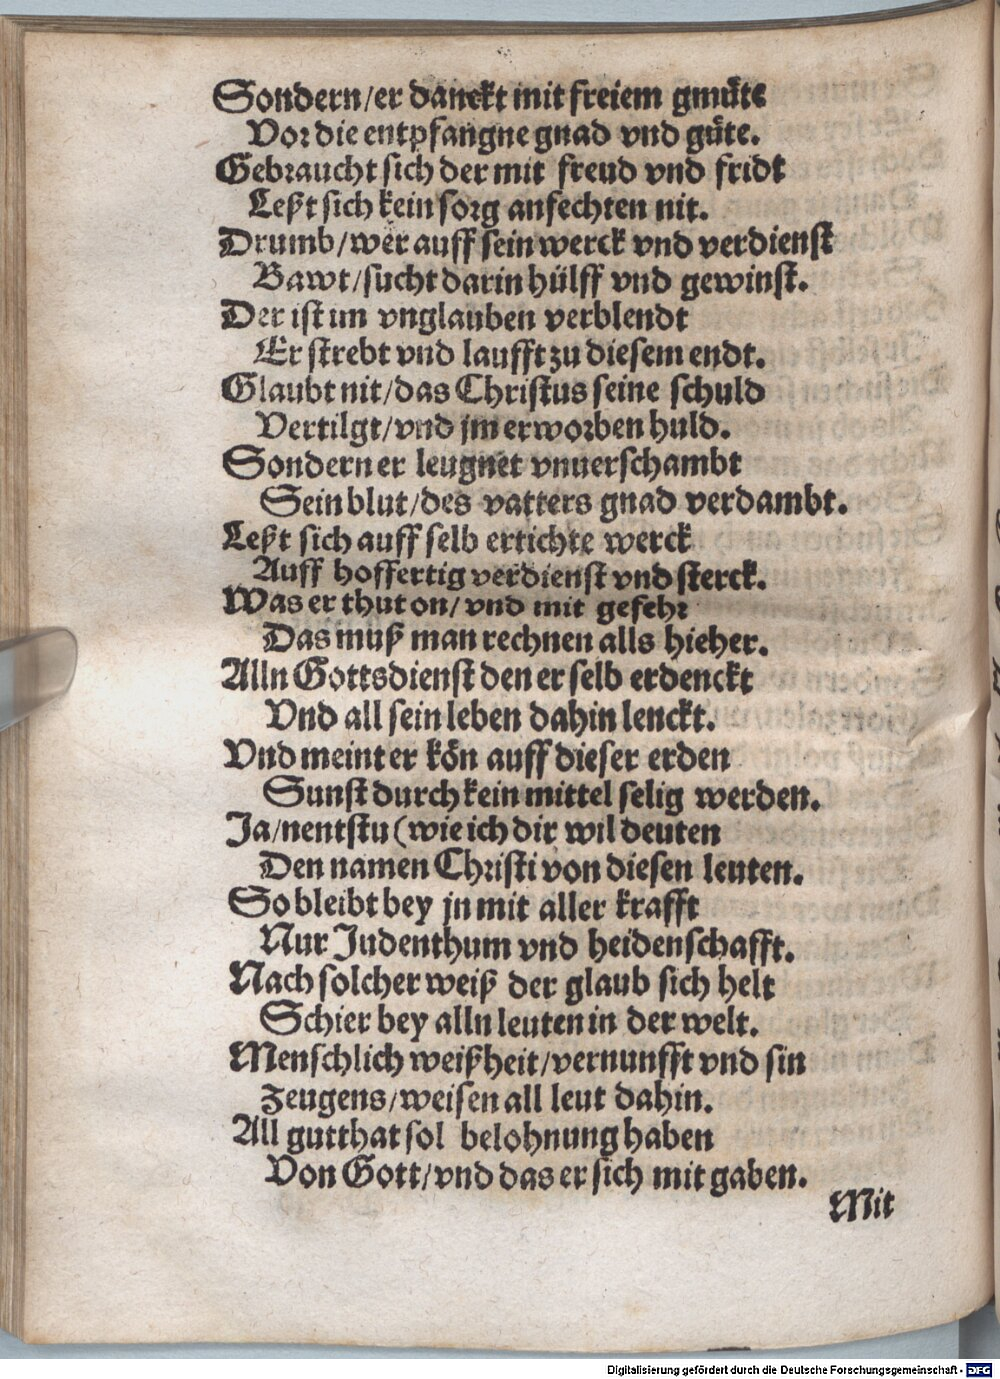 Sondern/er danckt mit freiem gmüte
Vor die entpfangne gnad vnd güte.
Gebraucht sich der mit freud vnd fridt
Leßt sich kein sorg anfechten nit.
Drumb/wer auff sein werck vnd verdienst
Bawt/sucht darin hülff vnd gewinst.
Der ist im vnglauben verblendt
Er strebt vnd laufft zu diesem endt.
Glaubt nit/das Christus seine schuld
Vertilgt/vnd jm erworben huld.
Sondern er leugnet vnuerschambt
Sein blut/des vatters gnad verdambt.
Leßt sich auff selb ertichte werck
Auff hoffertig verdienst vnd sterck.
Was er thut on/vnd mit gefehr
Das muß man rechnen alls hieher.
Alln Gottsdienst den er selb erdenckt
Vnd all sein leben dahin lenckt.
Vnd meint er kön auff dieser erden
Sunst durch kein mittel selig werden.
Ja/nentstu (wie ich dir wil deuten
Den namen Christi von diesen leuten.
So bleibt bey jn mit aller krafft
Nur Judenthum vnd heidenschafft.
Nach solcher weiß der glaub sich helt
Schier bey alln leuten in der welt.
Menschlich weißheit/vernunfft vnd sin
Zeugens/weisen all leut dahin.
All gutthat sol belohnung haben
Von Gott/vnd das er sich mit gaben.
Mit
Digitalisierung gefördert durch die Deutsche Forschungsgemeinschaft - DFG